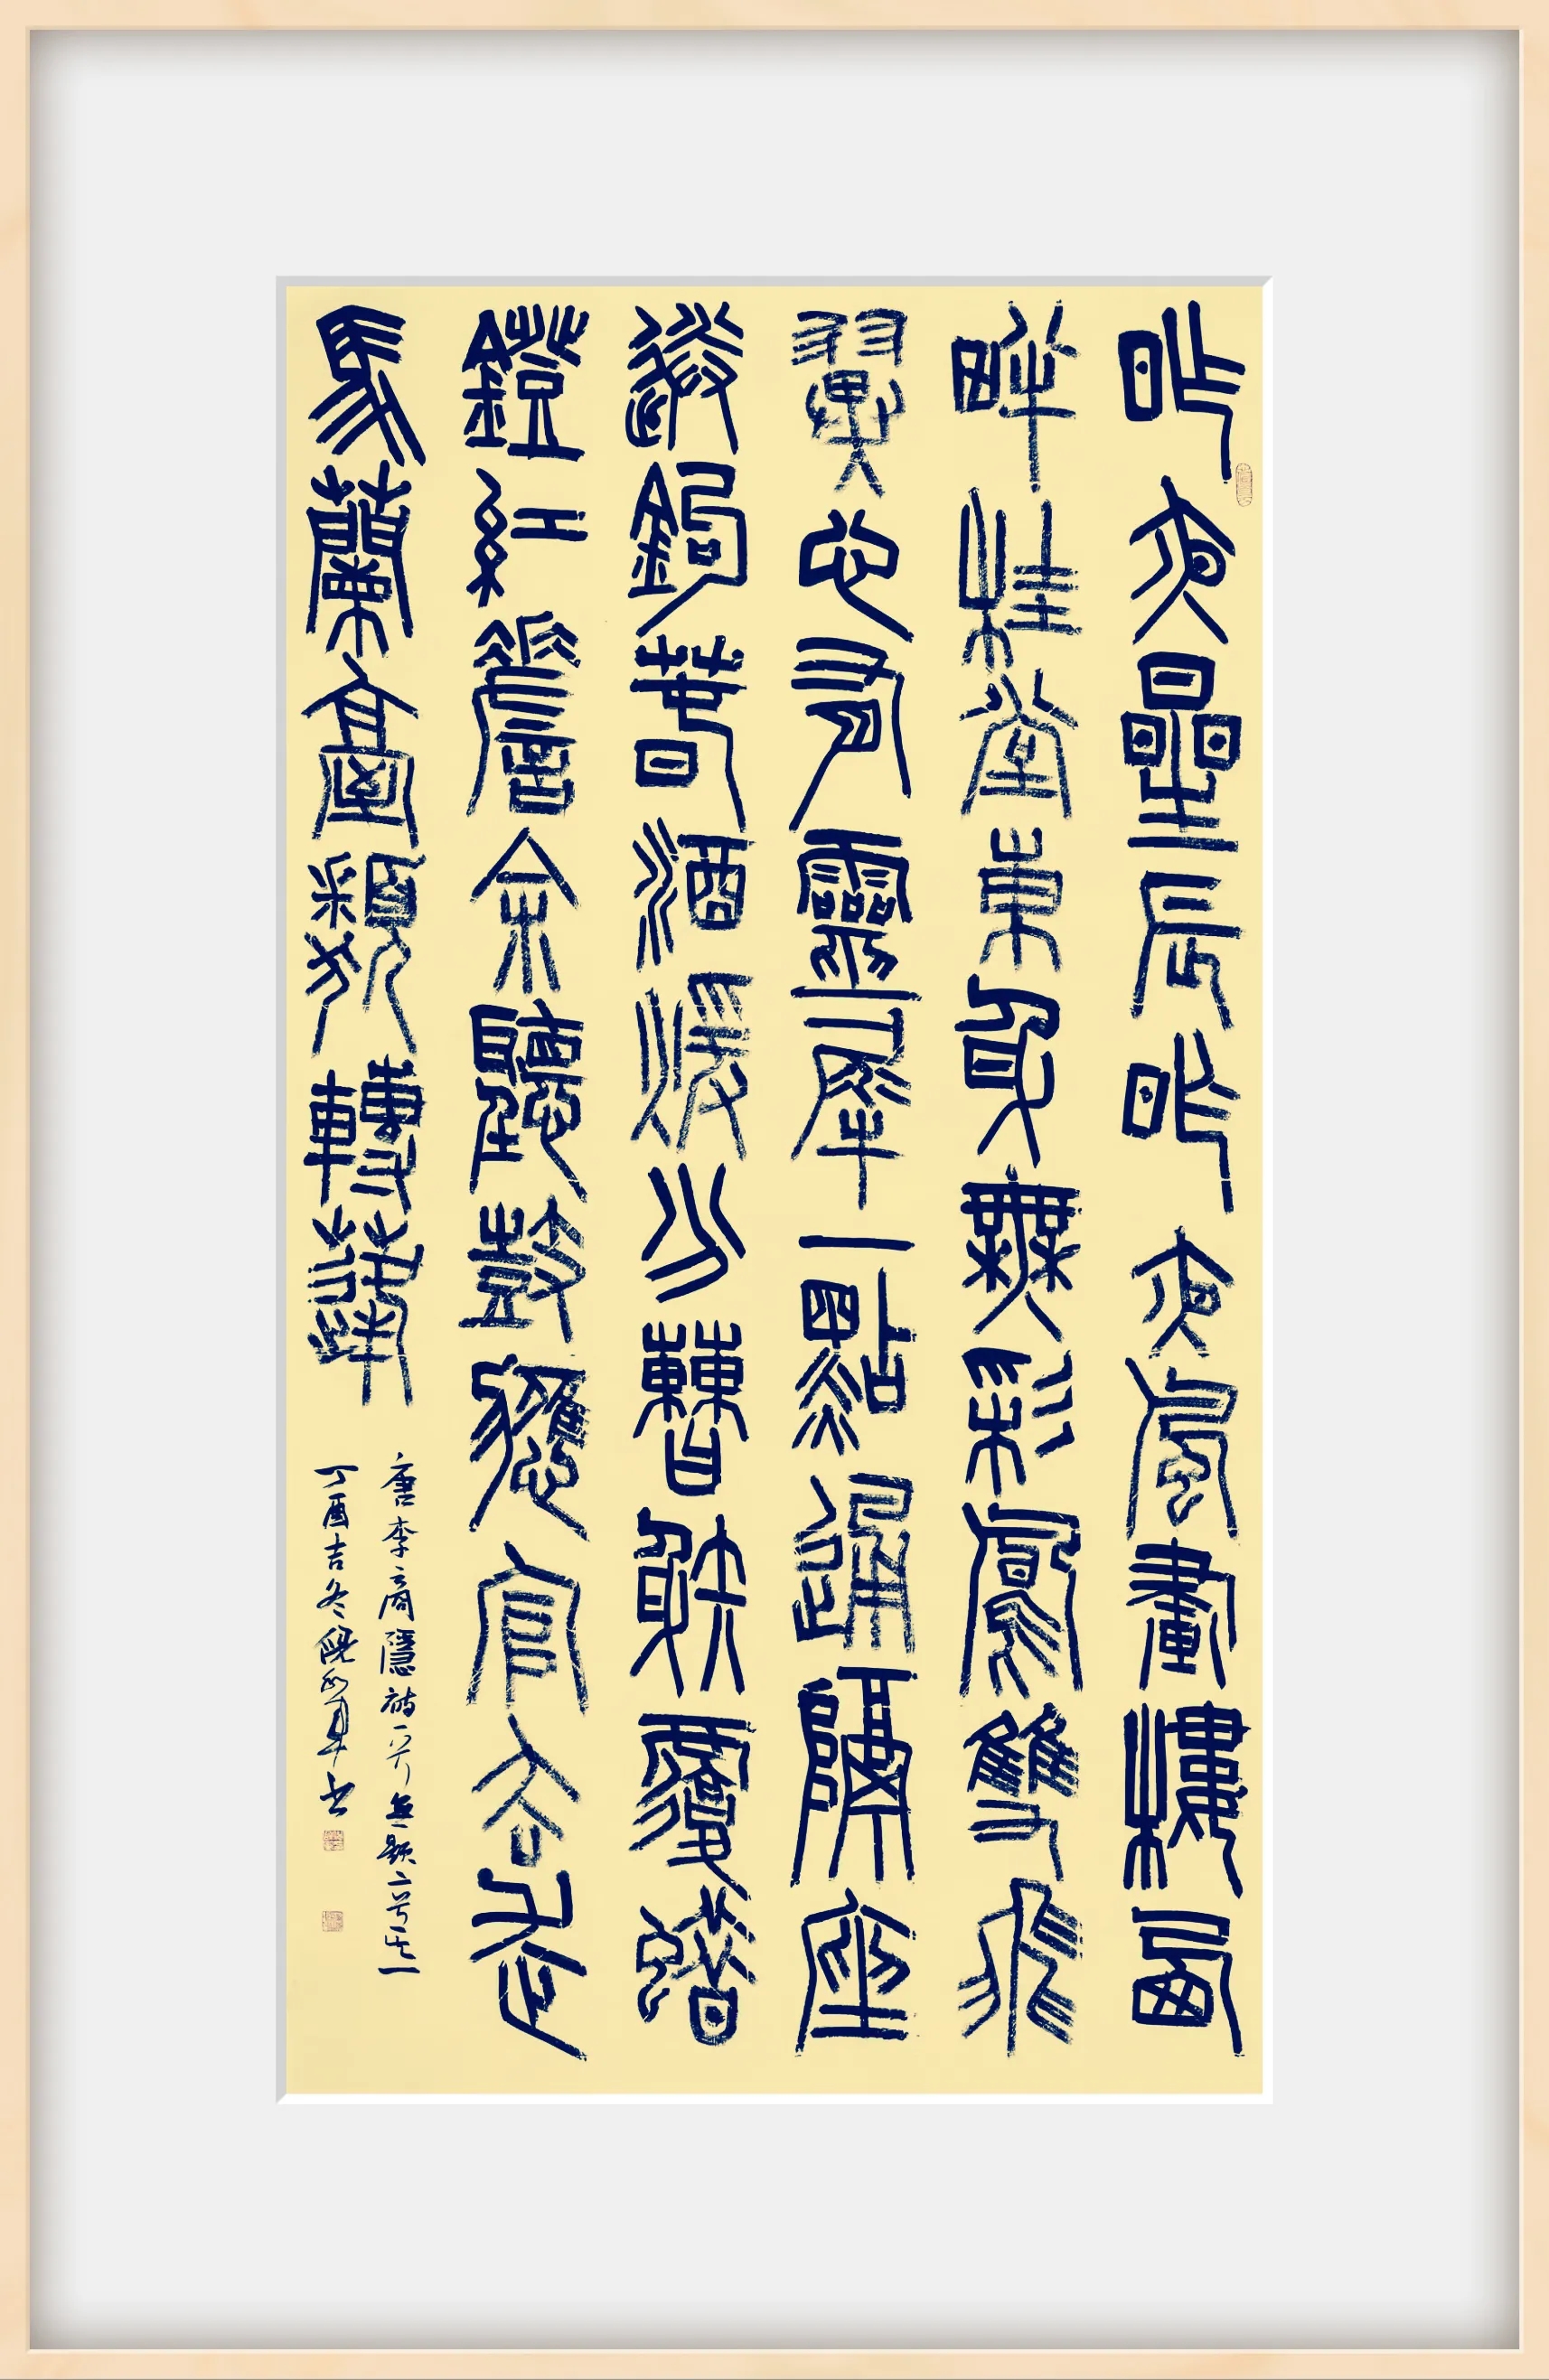 昨夜星辰昨夜風畫樓西
畔桂堂東身無彩鳳雙飛
翼心有靈犀一點通隔座
送鉤春酒暖分曹射覆蠟
鐙紅嗟余聽鼓應官去走
馬蘭臺類轉蓬
唐李商隱詩一首無題二首其一
丁酉吉冬倪軍书